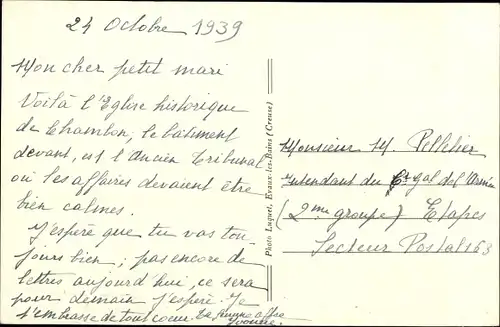 24 Octobre 1939
Mon cher petit mari
Voilà l'Eglise historique
de Chambon, le bâtiment
devant, est l'ancien Tribunal
où les affaires devaient être
bien calmes.
J'espère que tu vas tou-
jours bien; pas encore de
lettres aujourd'hui, ce sera
pour demain j'espère. Je
t'embrasse de tout coeur. Ta
Yvonne.
Photo Luquet, Evaux-les-Bains (Creuse)
Monsieur M. Pelletier
Intendant du Gal del
(2me groupe) Etapes
Secteur Postal 163